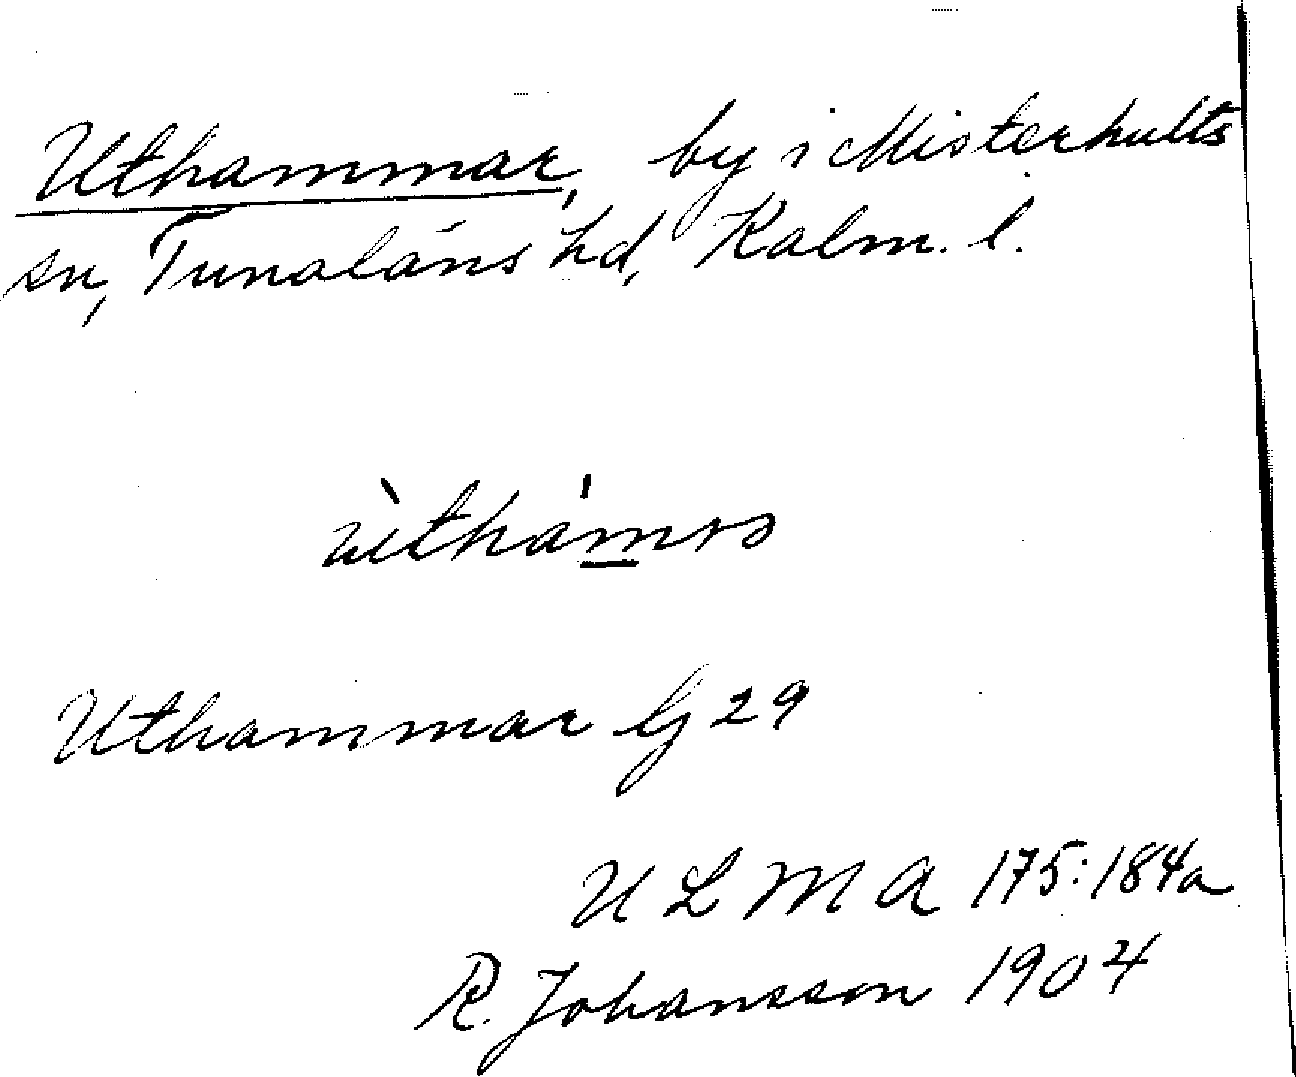 Uthammar, by i Misterhults
sn, Tunaläns hd, Kalm. l.
Uthammar Gj 29
U L M A 175:184a
R. Johansson 1904